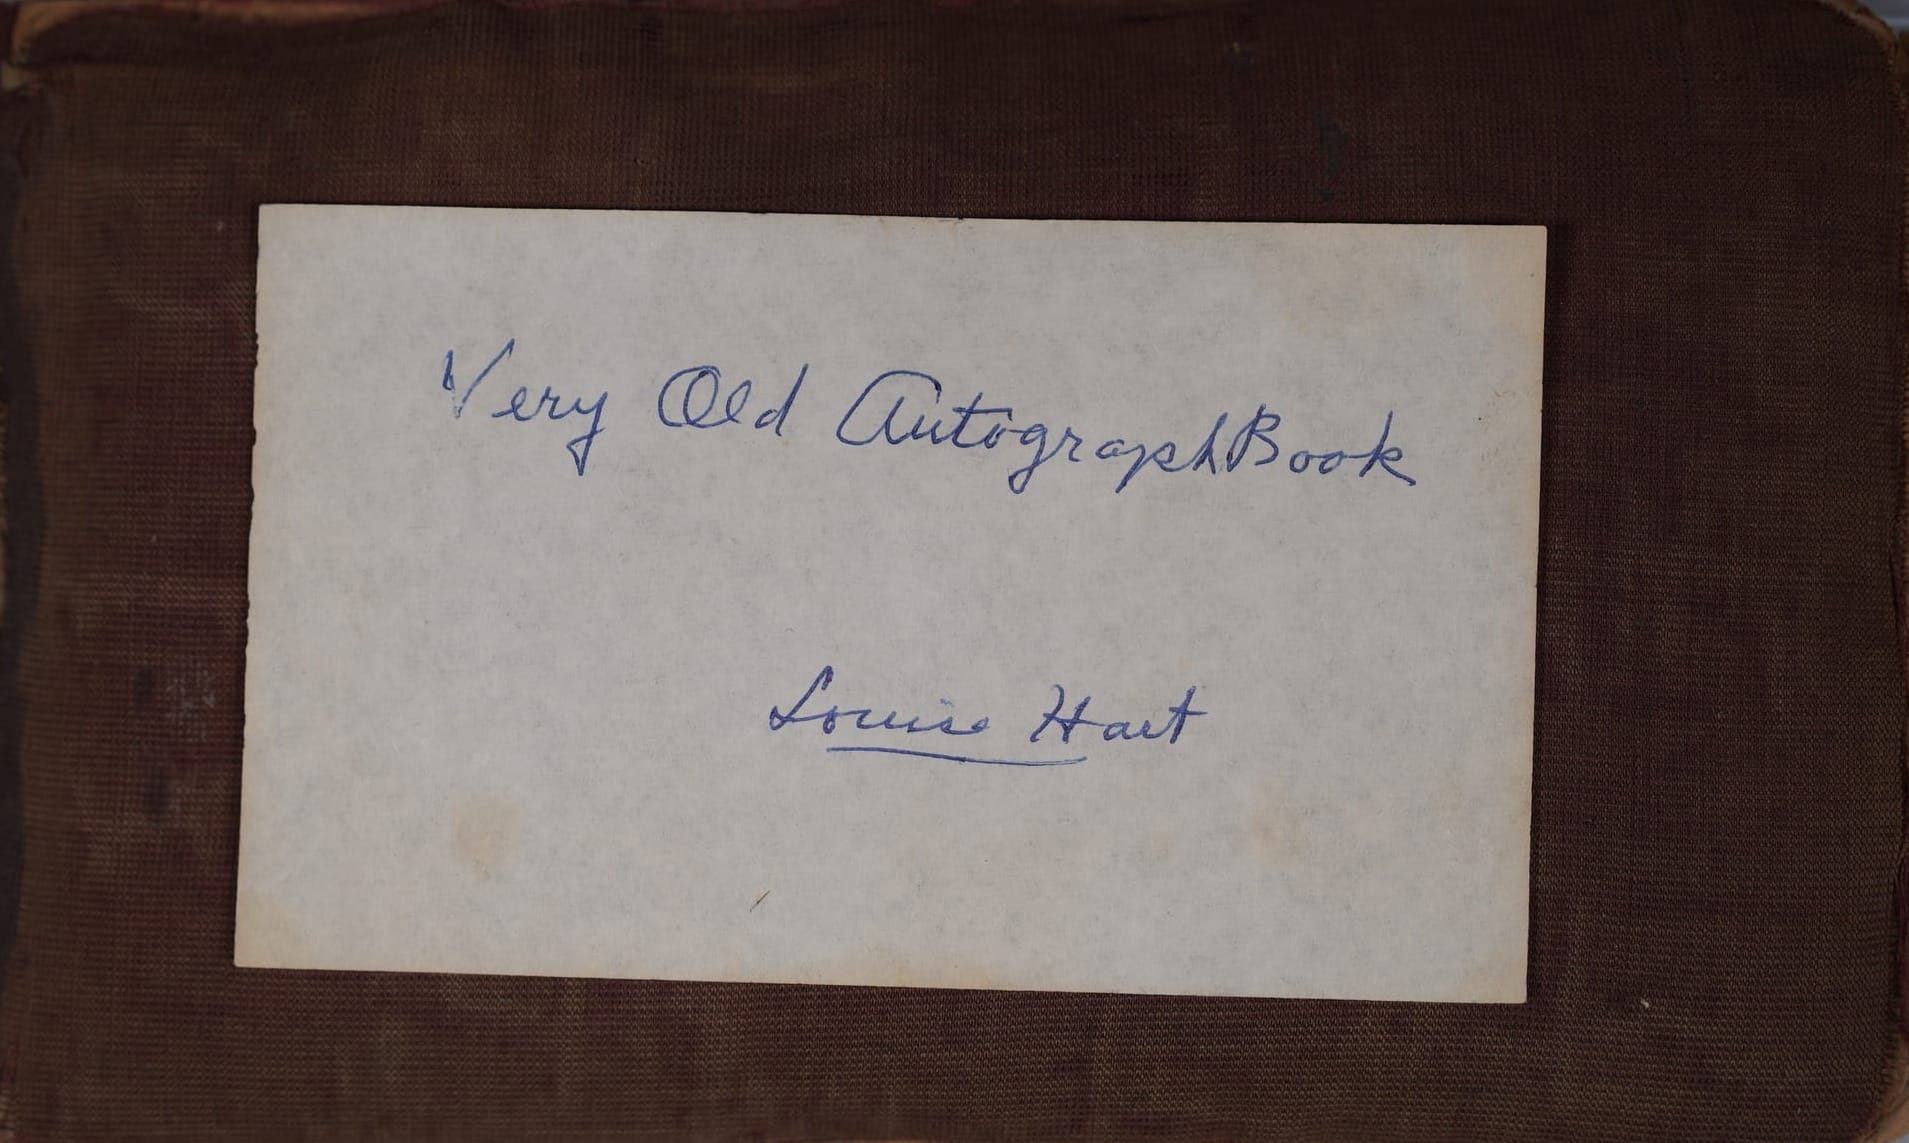 Very Old Autograph Book
Louise Hart